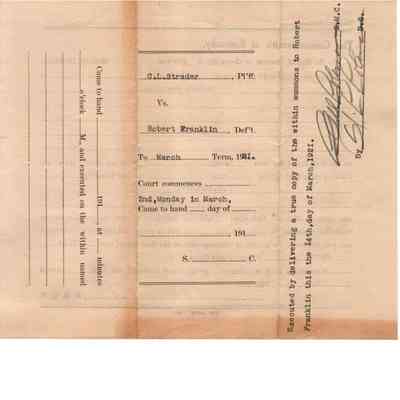 Came to hand 191 , at minutes
o'clock M., and executed on the within named
C.L.Strader , Pl'ff.
Vs.
Robert Franklin , Def't.
To March Term, 1921.
Court commences
2nd,Monday in March,
Came to hand day of
, 191
S. C.
Executed by delivering a true copy of the within summons to Robert
Franklin this the 14th,day of March,1921.
S.W.C.
By D.S.